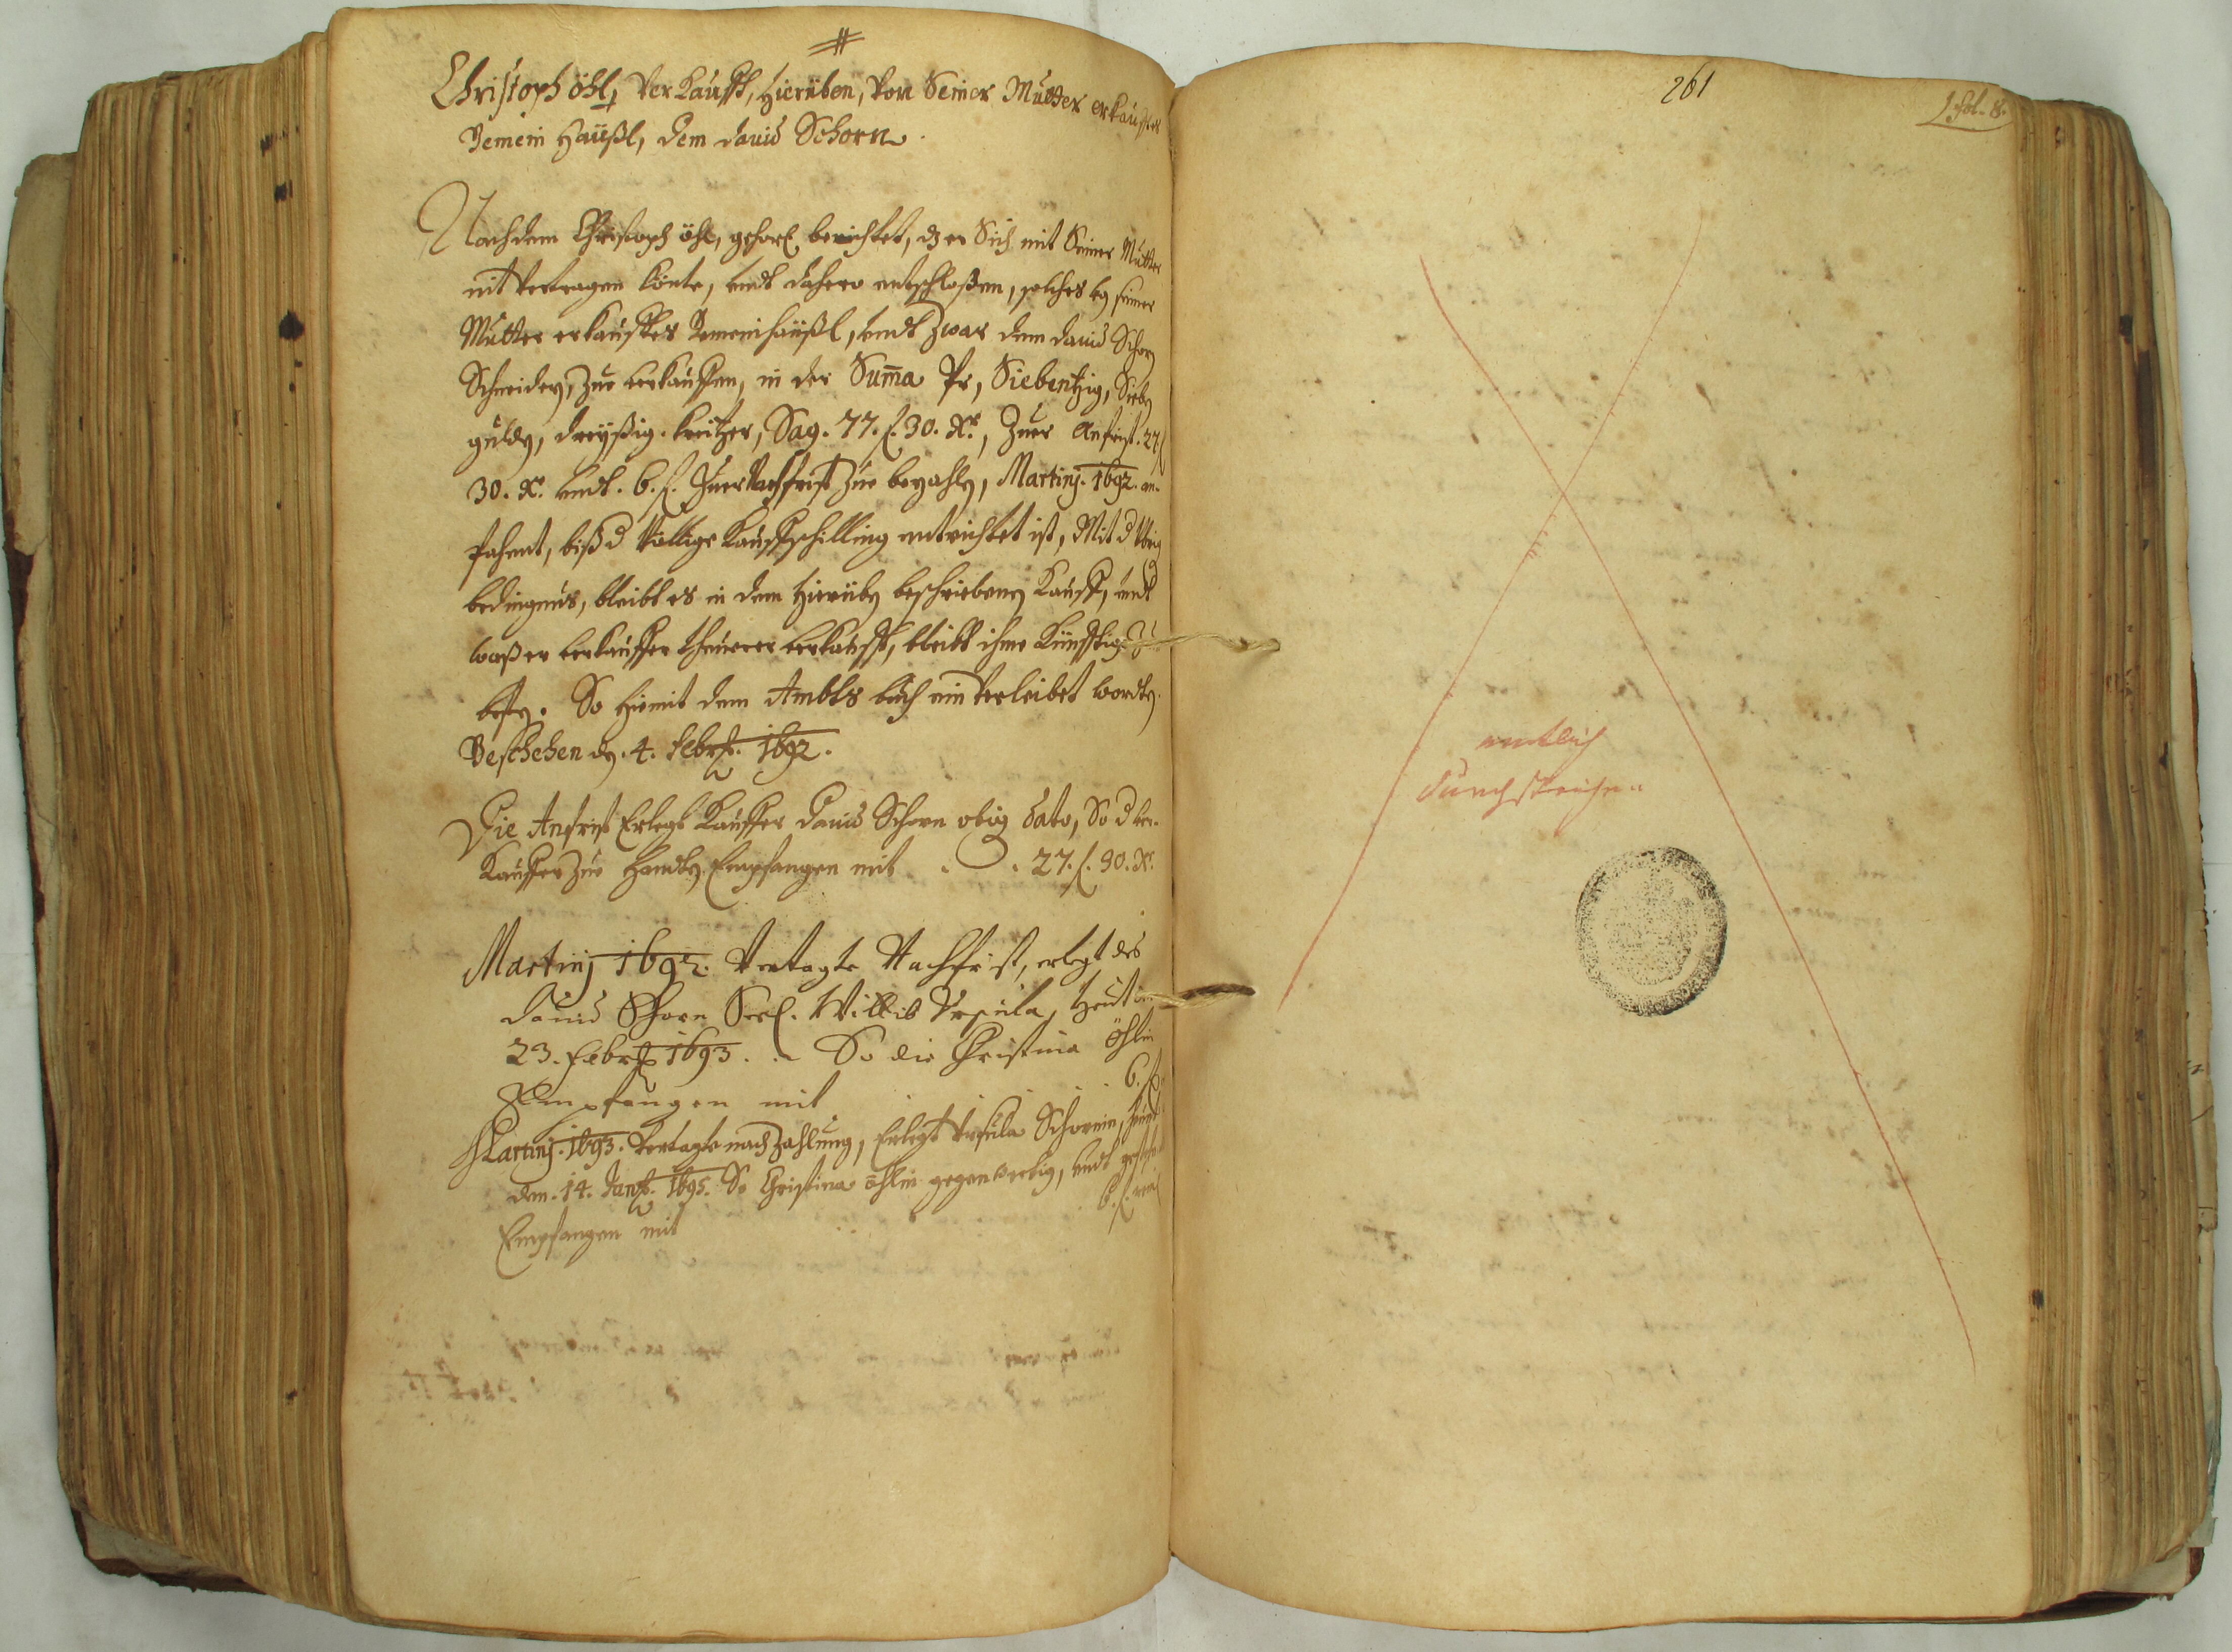 Christoph Öhl, Verkaufft, hierüben, von Seiner Mutter erkaufftes
Gemein Haüßl, dem Dauid Schorn.
Nachdem Christoph Öhl, gehors. berichtet, dz er Sich mit Seiner Mutter
nit vertragen könte, undt dahero entschloßen, solches von seiner
Mutter erkaufftes Gemeinhäüßl, undt zwar dem Dauid Schorn
Schneidern, zue verkauffen, in der Suma Pr, Siebentzig, Sieben
gulden, dreyßig. kreützer, Sag. 77. f. 30. Xr., Zuer Anfrist. 27. f
30. Xr. undt. 6. f. Zuer Nachfrist zue bezahlen, Martinj. 1692. an-
fahent, biß d Völlige Kauffschilling entrichtet ist, Mit d Ubrig
bedingnus, bleibt es in dem hierüben beschriebenen Kauff, undt
waß er verkauffer theurer verkaufft, bleibt ihme Künfftig zum
besten. So hiemit dem Ambts buch ein verleibet worden.
Beschehen den. 4. Febr. 1692.
Die Anfrist Erlegt Kauffer Dauid Schorn obig dato, So d ver-
Kauffer zue handen Empfangen mit . . 27. f. 30. Xr.
Martinj 1692. Vertagte Nachfrist, erlegt des
Dauid Schorn Seel. Wittib Ursula, heut den
23. Febr. 1693. So die Christina Öhlin
Empfangen mit 6. f.
Martinj. 1693. Vertagte nach Zahlung, Erlegt Ursula Schornin, heut
den. 14. Jan. 1695. So Christina Öhlin gegenwertig, undt
Empfangen mit 6. f.
261
fol. 8.
amtlich
durchstrichen.